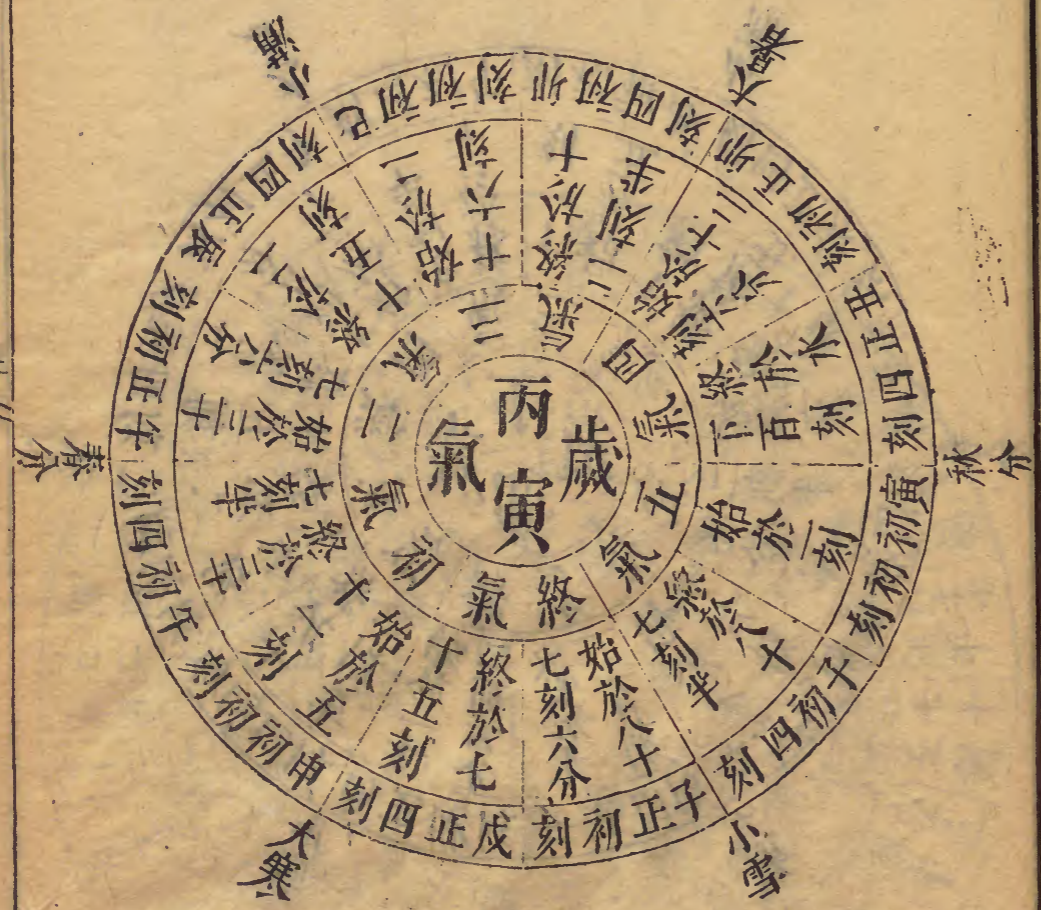 丙寅歲氣
初氣
二氣
三氣
四氣
五氣
終氣
始於五
十一刻
終於三十
七刻半
始於三十
七刻六分
終於二
十五刻
始於二
十六刻
終於十
二刻半
始於十二
刻六分
終於水
下百刻
始於
一刻
終於八十
七刻半
始於八十
七刻六分
終於七
十五刻
申初初刻
午初四刻
午正初刻
辰正四刻
巳初初刻
卯初四刻
卯正初刻
丑正四刻
寅初初刻
子初四刻
子正初刻
戌正四刻
大寒
春分
小滿
大暑
秋分
小雪